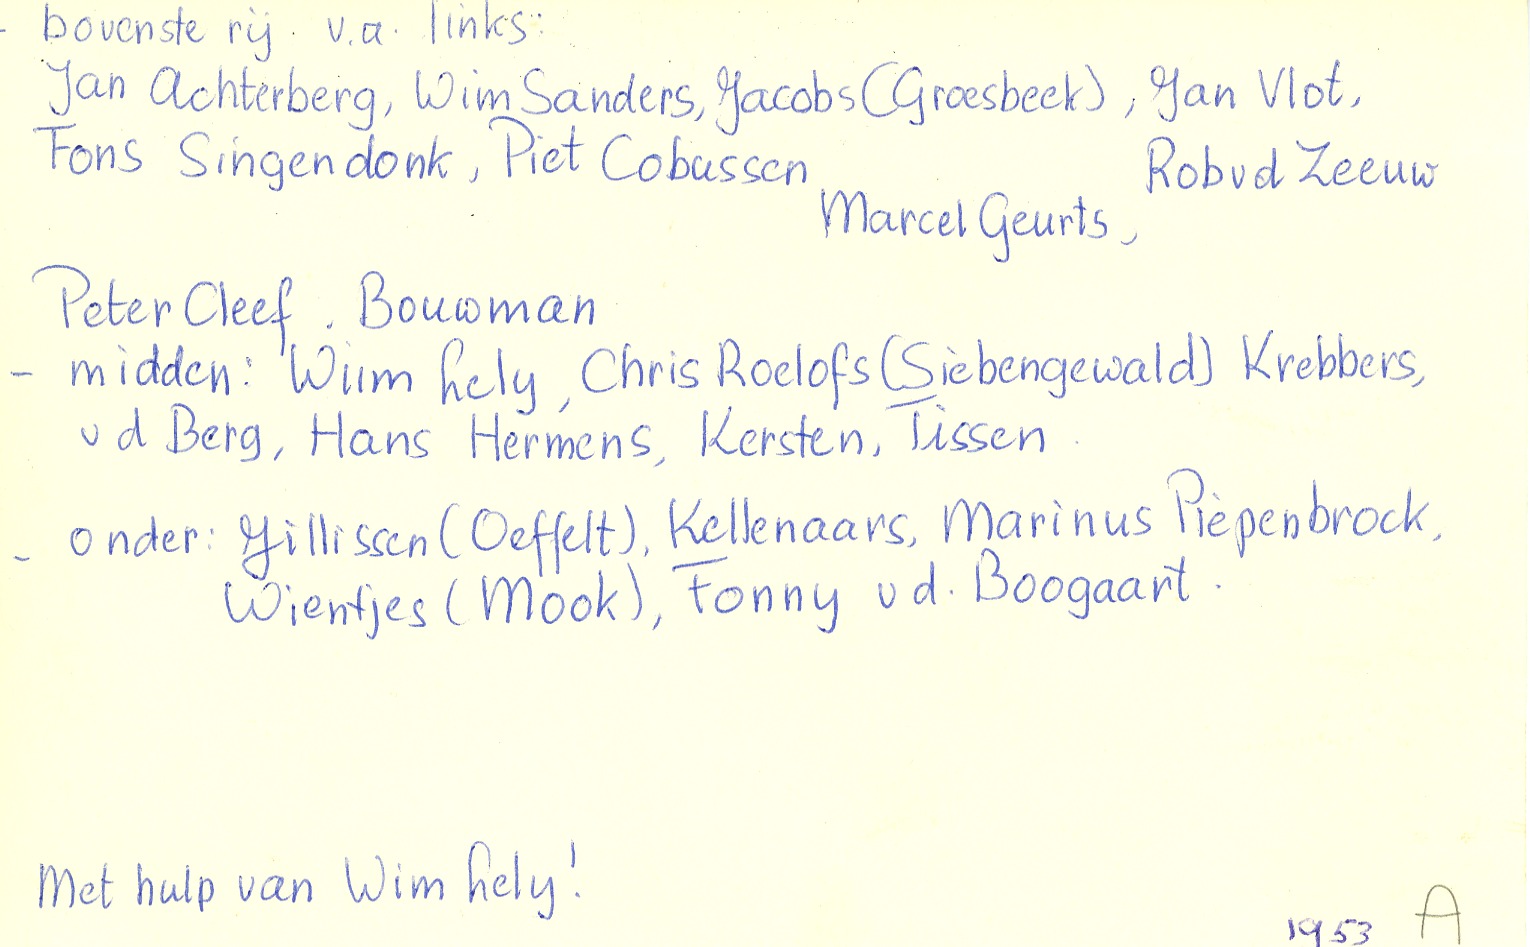 - bovenste rij. v.a. links:
Jan Achterberg, Wim Sanders, Jacobs (Groesbeek), Jan Vlot,
Fons Singendonk, Piet Cobussen
Marcel Geurts, Rob vd Zeeuw
Peter Cleef, Bouwman
- midden: Wiim Lely, Chris Roelofs (Siebengewald) Krebbers,
v d Berg, Hans Hermens, Kersten, Tissen.
- onder: Gillissen (Oeffelt), Kellenaars, Marinus Piepenbrock,
Wientjes (Mook), Fonny v d. Boogaart.
Met hulp van Wim Lely!
1953 A